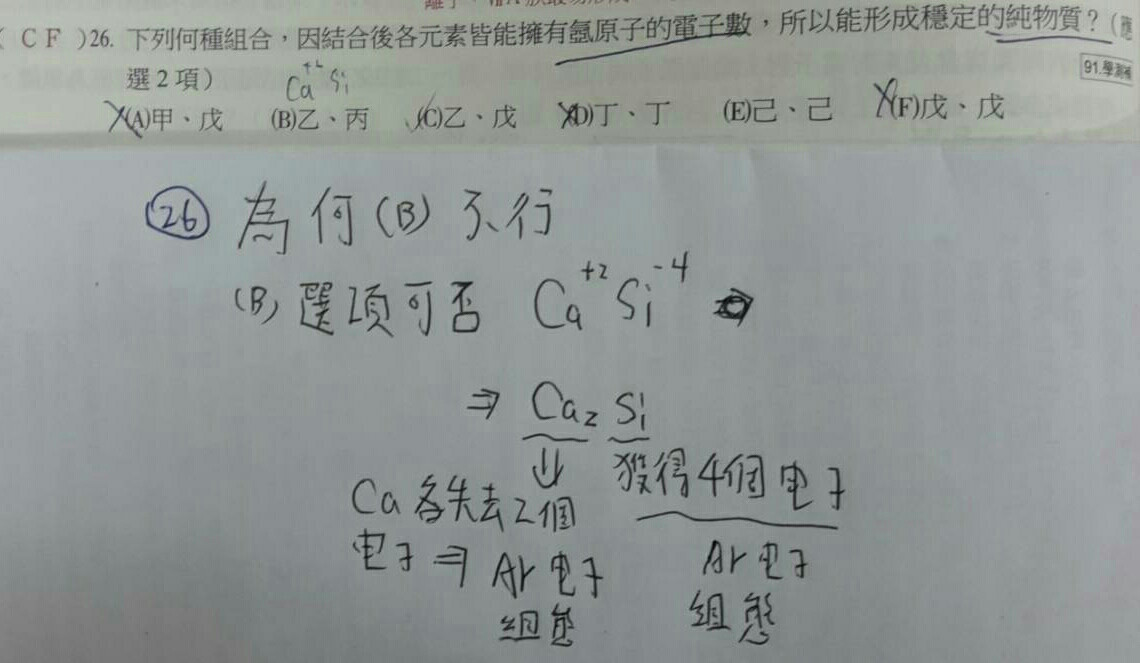 ( CF )26. 下列何種組合，因結合後各元素皆能擁有氬原子的電子數，所以能形成穩定的純物質？（應
選2項）
Ca+2 Si
91.學測補
(A)甲、戊 (B)乙、丙 (C)乙、戊 (D)丁、丁 (E)己、己 (F)戊、戊
26 為何(B)不行
(B)選項可否 Ca+2 Si-4
⇒ Ca2 Si
⇓ 獲得4個电子
Ca各失去2個
电子 ⇒ Ar电子
組態
Ar电子
組態